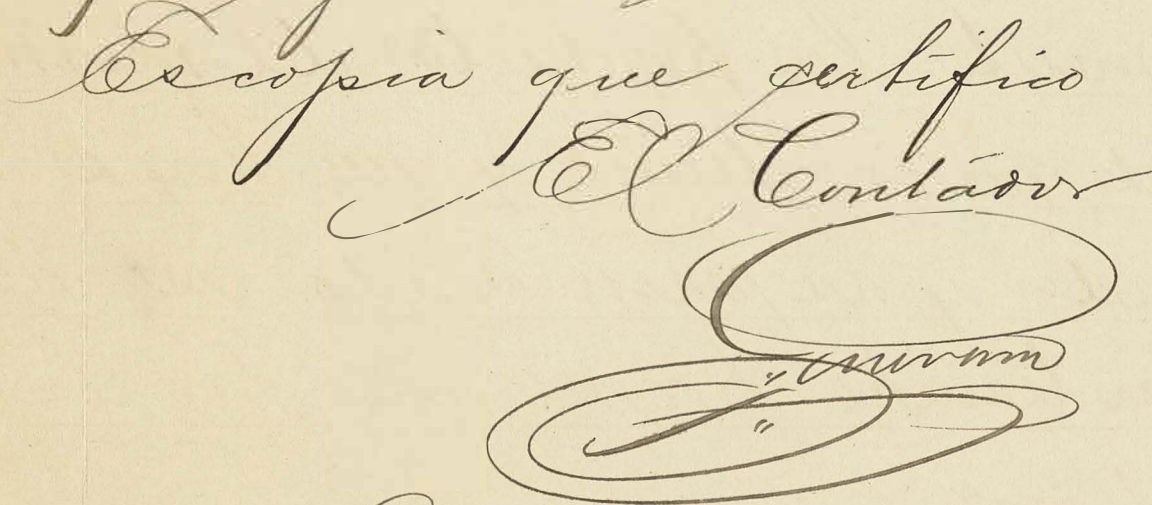 Escopia que certifico
El Contádor